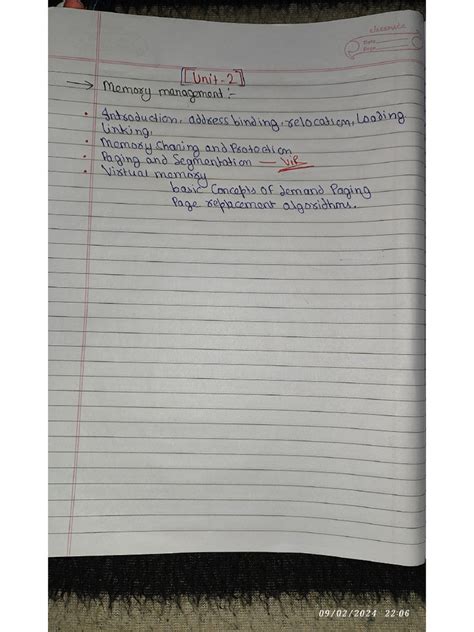 classmate
Date
Page
[Unit-2]
→ Memory management:-
• Introduction, address binding, relocation, Loading
linking,
• Memory Charing and Protoction
• Paging and Segmentation — V.I.P
• Virtual memory
basic Concepts of demand Paging
Page replacement algorithms.
09/02/2024 22:06